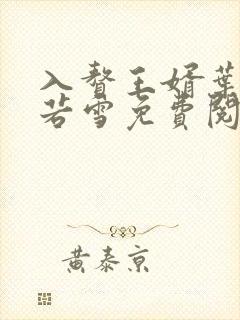 入赘王婿葉
若雪免費閱
黃泰京